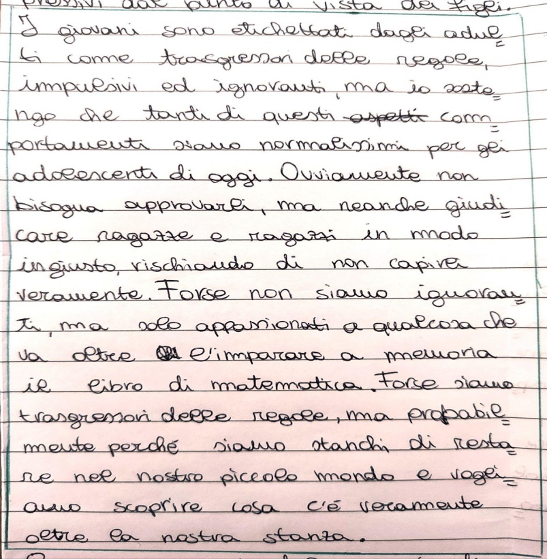 pressivi dal punto di vista dei figli.
I giovani sono etichettati dagli adul=
ti come trasgressori delle regole,
impulsivi ed ignoranti, ma io soste=
ngo che tanti di questi aspetti com=
portamenti siano normalissimi per gli
adolescenti di oggi. Ovviamente non
bisogna approvarli, ma neanche giudi=
care ragazze e ragazzi in modo
ingiusto, rischiando di non capirli
veramente. Forse non siamo ignoran=
ti, ma solo appassionati a qualcosa che
va oltre l'imparare a memoria
il libro di matematica. Forse siamo
trasgressori delle regole, ma probabil=
mente perché siamo stanchi di resta=
re nel nostro piccolo mondo e vogli=
amo scoprire cosa c'é veramente
oltre la nostra stanza.